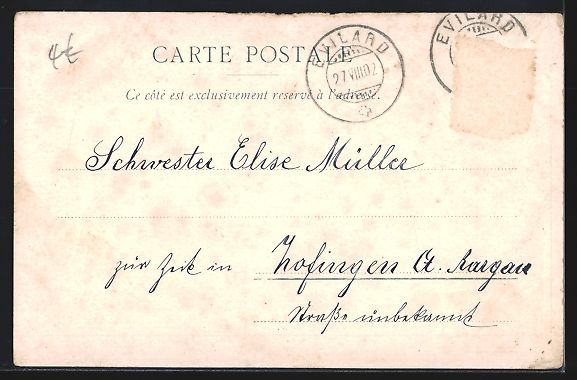 4€
CARTE POSTALE
EVILARD
27.VIII.02
EVILARD
Ce côté est exclusivement réservé à l'adresse.
Schwester Elise Müller
zur Zeit in Zofingen Ct. Aargau
Straße unbekannt